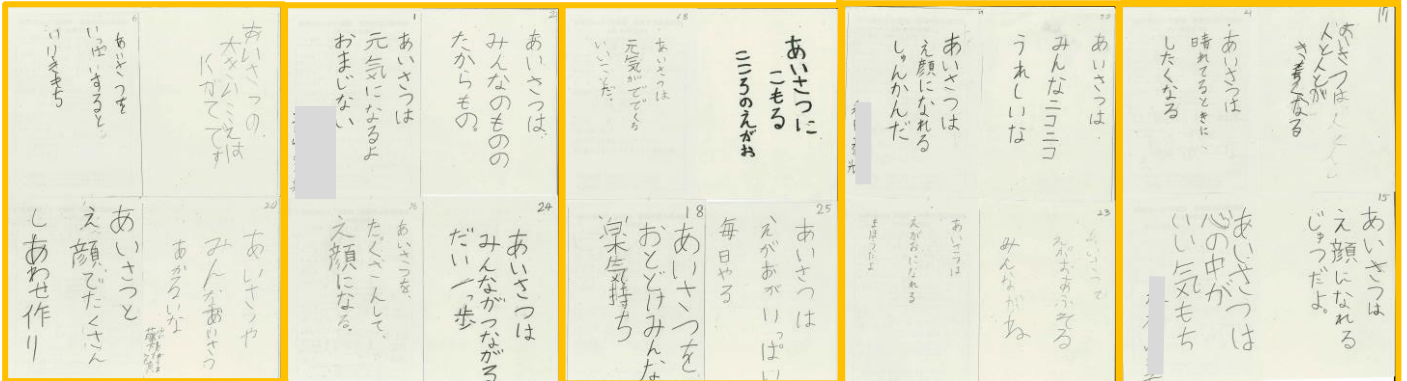 あいさつの
大きいこえは
6
あいさつを
いっぱいすると
いいきもち
20
あいさつや
みんなあいさつ
あかるいな
あいさつと
え顔でたくさん
しあわせ作り
2
あいさつは、
みんなのものの
たからもの。
1
あいさつは
元気になるよ
おまじない
24
あいさつは
みんながつながる
だい一っ歩
あいさつを、
たくさんして、
え顔になる。
あいさつに
こもる
こころのえがお
あいさつは
元気がでてくる
いいことだ。
25
あいさつは
えがあがいっぱい
毎日やる
18
あいさつを
おとどけみんな
楽気持ち
あいさつは
みんなニコニコ
うれしいな
9
あいさつは
え顔になれる
しゅんかんだ
23
あいさつで
えがおあふれてる
みんながね
あいさつは
えがおになれる
まほうだよ
17
あいさつは
人と人とが
あいさつは
晴れてるときに
したくなる
15
あいさつは
え顔になれる
じゅつだよ。
あいさつは
心の中が
いい気もち